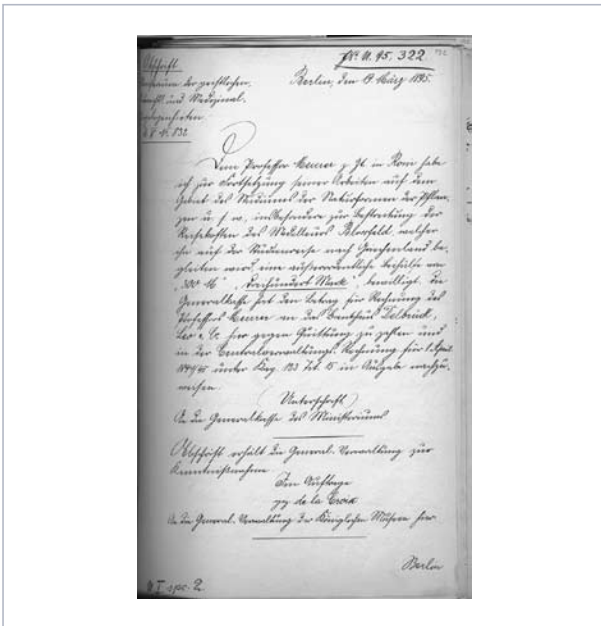 Nr. U. 95, 322
Abschrift
Ministerium der geistlichen,
Berlin, den 19 März 1895.
Unterrichts- und Medizinal-
Angelegenheiten
Dem Professor Meurer z. Zt. in Rom habe
ich zur Fortsetzung seiner Arbeiten auf dem
Gebiet des Studiums der Naturformen der Pflan-
zen u. s. w., insbesondere zur Bestreitung der
Reisekosten des Modelleurs Blossfeld, welcher
ihn auf der Studienreise nach Griechenland be-
gleiten wird, eine außerordentliche Beihülfe von
"300 M", "Dreihundert Mark", bewilligt. Die
Generalkasse hat den Betrag für Rechnung des
Professors Meurer an das Bankhaus Delbrück,
Leo & Co. hier gegen Quittung zu zahlen und
in der Centralverwaltungs-Rechnung für 1 April
1894/95 unter Kap. 122 Tit. in Ausgabe nachzu-
weisen.
(Unterschrift)
An die Generalkasse des Ministeriums
Abschrift erhält die General-Verwaltung zur
Kenntnißnahme
Im Auftrage
gz. de la Croix
An die General-Verwaltung der Königlichen Museen hier.
Berlin